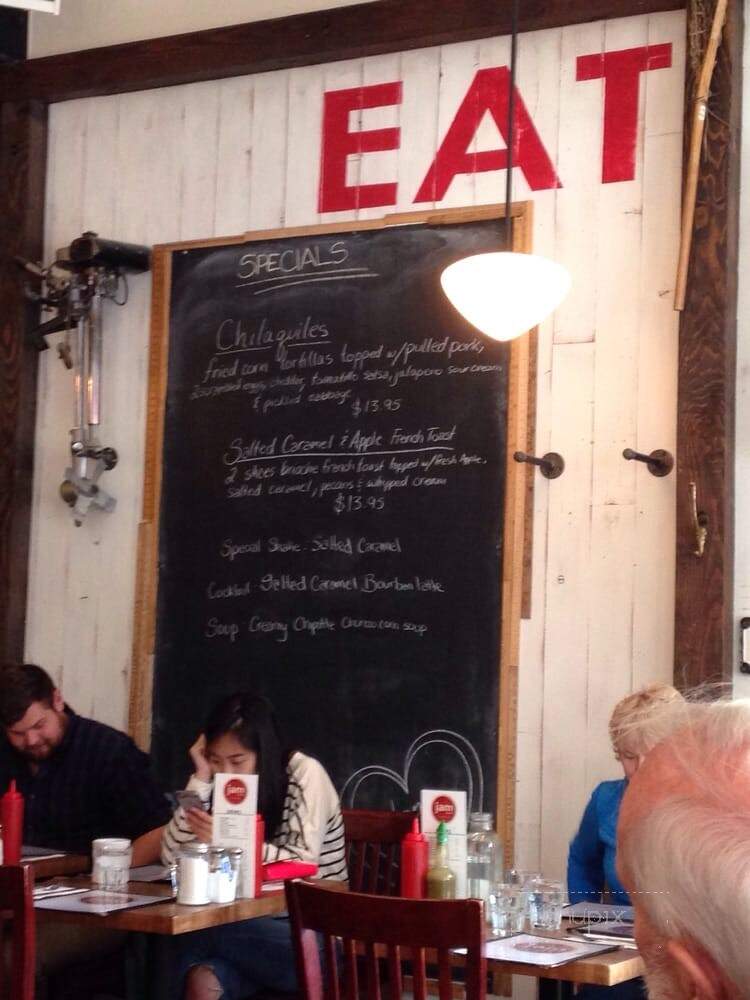 EAT
SPECIALS
Chilaquiles
fried corn tortillas topped w/ pulled pork,
2 scrambled eggs, cheddar, tomatillo salsa, jalapeno sour cream
& pickled cabbage
$13.95
Salted Caramel & Apple French Toast
2 slices brioche french toast topped w/ fresh Apple,
salted caramel, pecans & whipped cream
$13.95
Special Shake - Salted Caramel
Cocktail - Salted Caramel Bourbon latte
Soup - Creamy Chipotle Chorizo corn soup
jam
jam